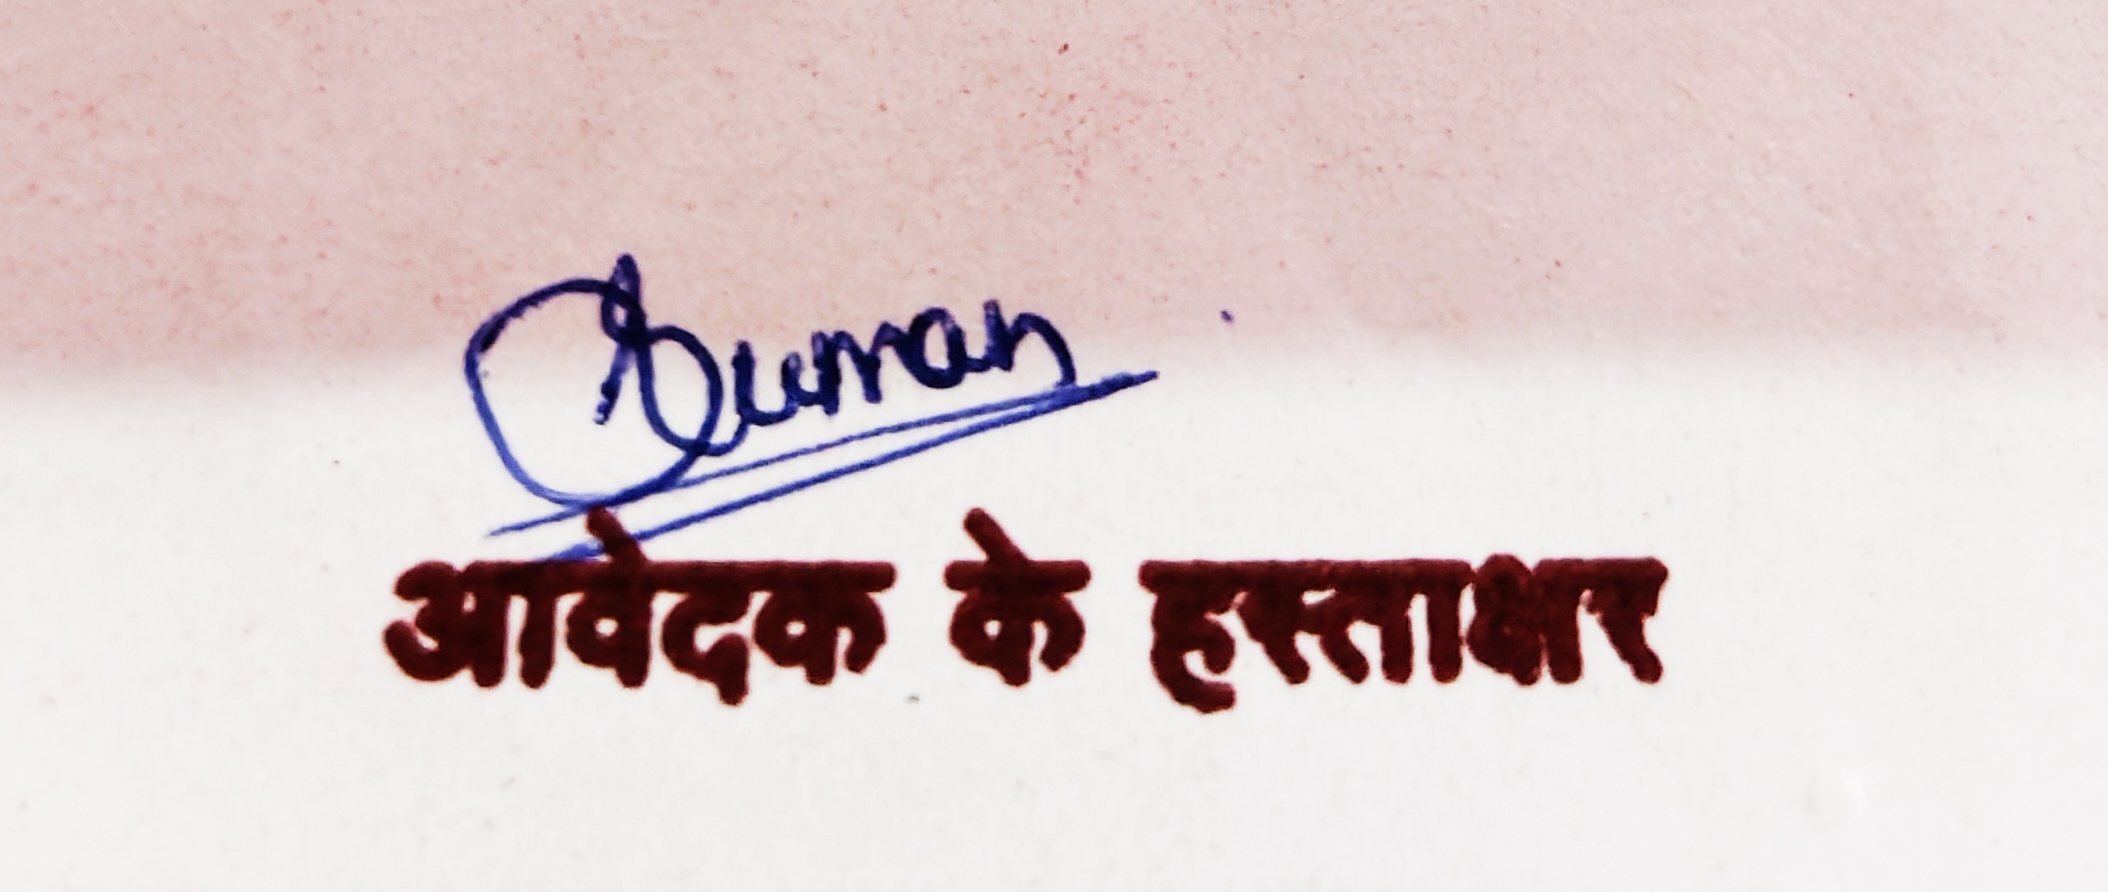 Suman
आवेदक के हस्ताक्षर